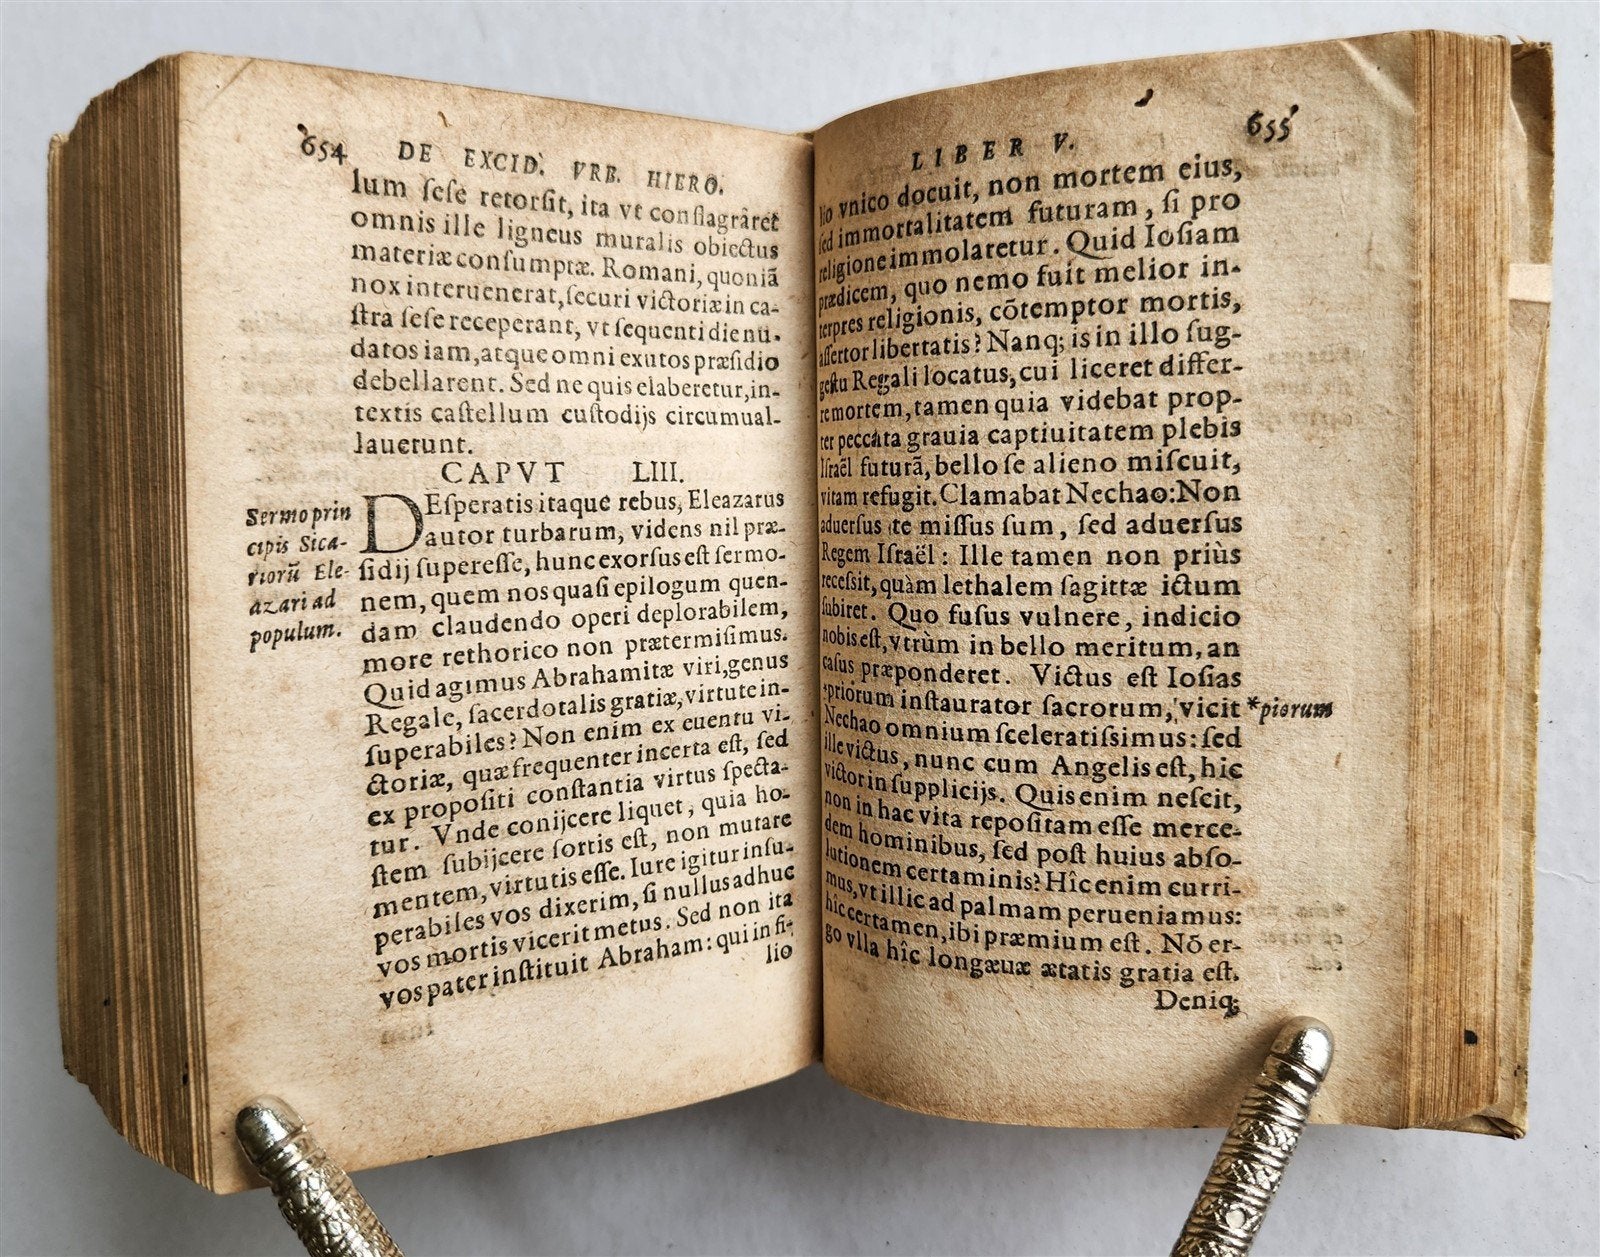 654 DE EXCID. VRB. HIERO.
lum ſeſe retorſit, ita vt conflagrâret
omnis ille ligneus muralis obiectus
materiæ conſumptæ. Romani, quoniã
nox interuenerat, ſecuri victoriæ in ca-
ſtra ſeſe receperant, vt ſequenti die nu-
datos iam, atque omni exutos præſidio
debellarent. Sed ne quis elaberetur, in-
textis caſtellum cuſtodijs circumual-
lauerunt.
CAPVT LIII.
Sermo prin
cipis Sica-
riorũ Ele-
azari ad
populum.
DEſperatis itaque rebus, Eleazarus
autor turbarum, videns nil præ-
ſidij ſupereſſe, hunc exorſus eſt ſermo-
nem, quem nos quaſi epilogum quen-
dam claudendo operi deplorabilem,
more rethorico non prætermiſimus.
Quid agimus Abrahamitæ viri, genus
Regale, ſacerdotalis gratiæ, virtute in-
ſuperabiles? Non enim ex euentu vi-
ctoriæ, quæ frequenter incerta eſt, ſed
ex propoſiti conſtantia virtus ſpecta-
tur. Vnde conijcere liquet, quia ho-
ſtem ſubijcere ſortis eſt, non mutare
mentem, virtutis eſſe. Iure igitur inſu-
perabiles vos dixerim, ſi nullus adhuc
vos mortis vicerit metus. Sed non ita
vos pater inſtituit Abraham: qui in fi-
lio
LIBER V. 655
lio vnico docuit, non mortem eius,
ſed immortalitatem futuram, ſi pro
religione immolaretur. Quid Ioſiam
prædicem, quo nemo fuit melior in-
terpres religionis, cõtemptor mortis,
aſſertor libertatis? Nanq; is in illo ſug-
geſtu Regali locatus, cui liceret differ-
re mortem, tamen quia videbat prop-
ter peccata grauia captiuitatem plebis
Iſraẽl futurã, bello ſe alieno miſcuit,
vitam refugit. Clamabat Nechao: Non
aduerſus te miſſus ſum, ſed aduerſus
Regem Iſraël: Ille tamen non priùs
receſsit, quàm lethalem ſagittæ ictum
ſubiret. Quo fuſus vulnere, indicio
nobis eſt, vtrùm in bello meritum, an
caſus præponderet. Victus eſt Ioſias
*priorum inſtaurator ſacrorum, vicit
*piorum
Nechao omnium ſceleratiſsimus: ſed
ille victus, nunc cum Angelis eſt, hic
victor in ſupplicijs. Quis enim neſcit,
non in hac vita repoſitam eſſe merce-
dem hominibus, ſed poſt huius abſo-
lutionem certaminis? Hîc enim curri-
mus, vt illic ad palmam perueniamus:
hîc certamen, ibi præmium eſt. Nõ er-
go vlla hîc longæuæ ætatis gratia eſt.
Deniq;